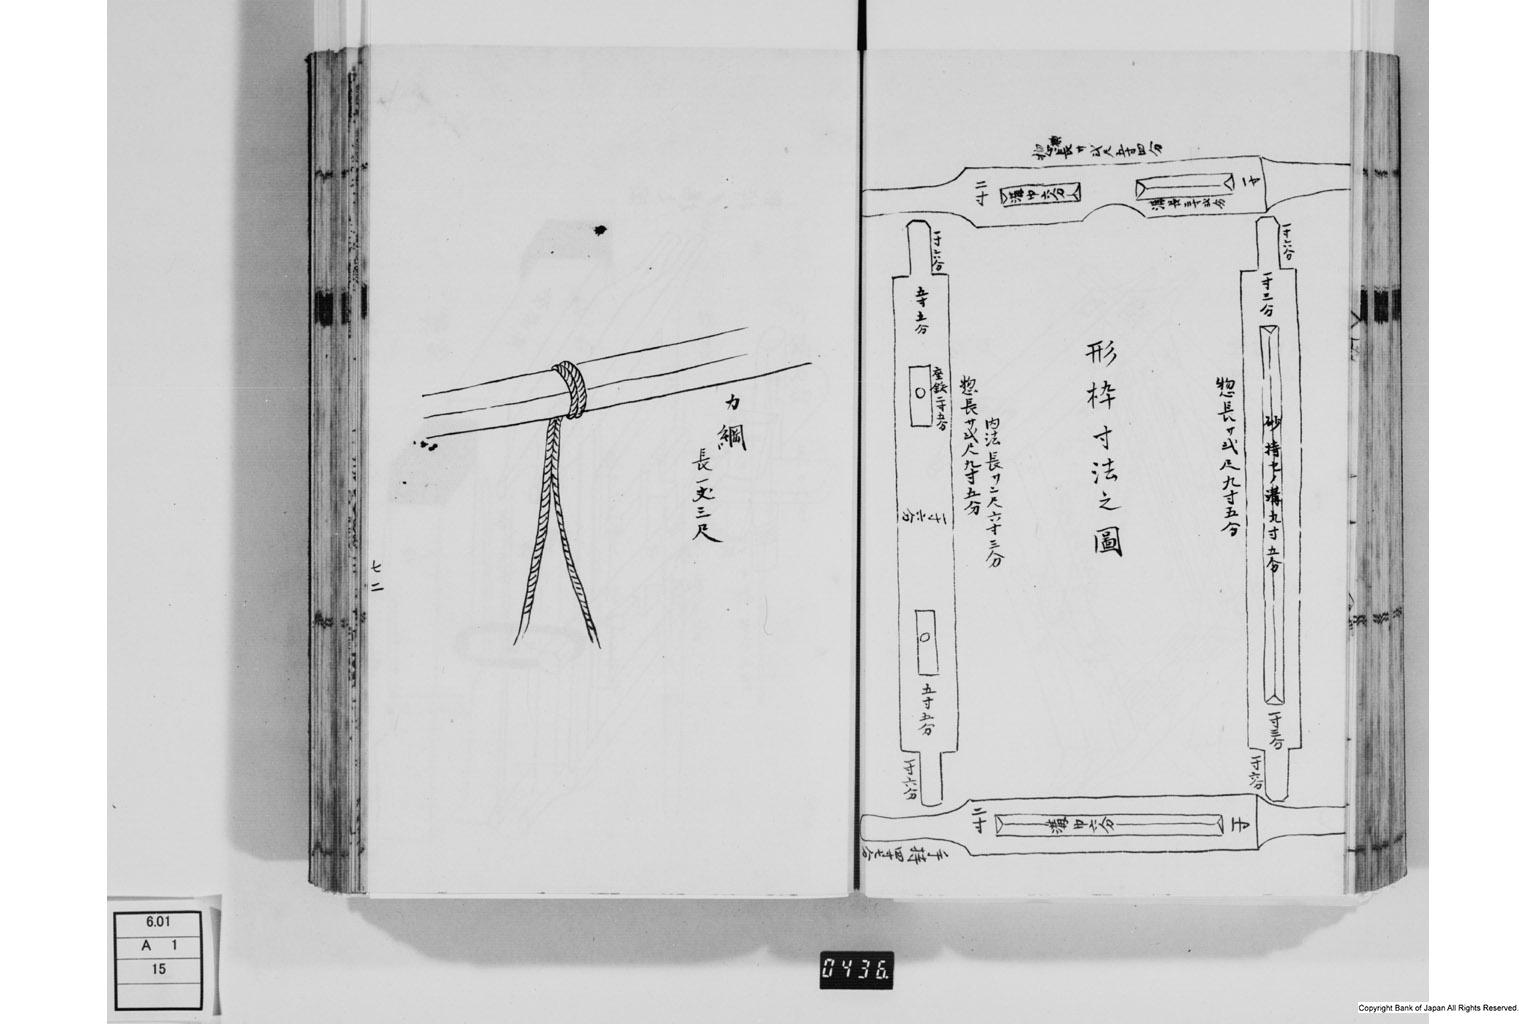 形枠寸法之圖
惣長サ弐尺九寸五分
砂持セノ溝九寸五分
一寸六分
一寸三分
一寸三分
一寸六分
一寸
溝巾六分
二寸
一寸六分
五寸五分
座鉄二寸五分
惣長サ弐尺九寸五分
内法長サ二尺六寸三分
一寸六分
五寸五分
一寸六分
二寸
溝巾六分
一寸
力綱
長一丈三尺
七二
6.01
A 1
15
0436.
Copyright Bank of Japan All Rights Reserved.